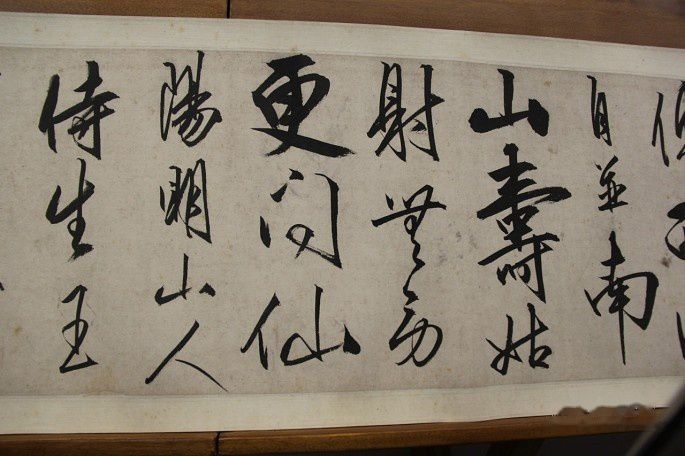 自並南
山壽姑
射無勞
更問仙
陽明山人
侍生王